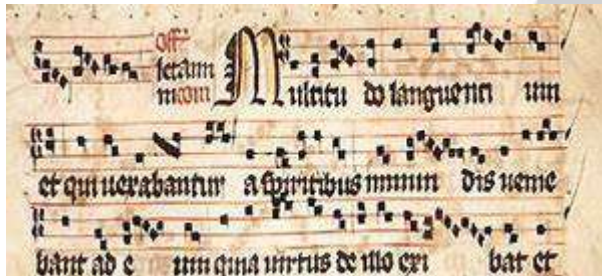 Off
Multitu do languenti um
et qui uexabantur a spiritibus inmun dis uenie
bant ad e um quia uirtus de illo exi bat et